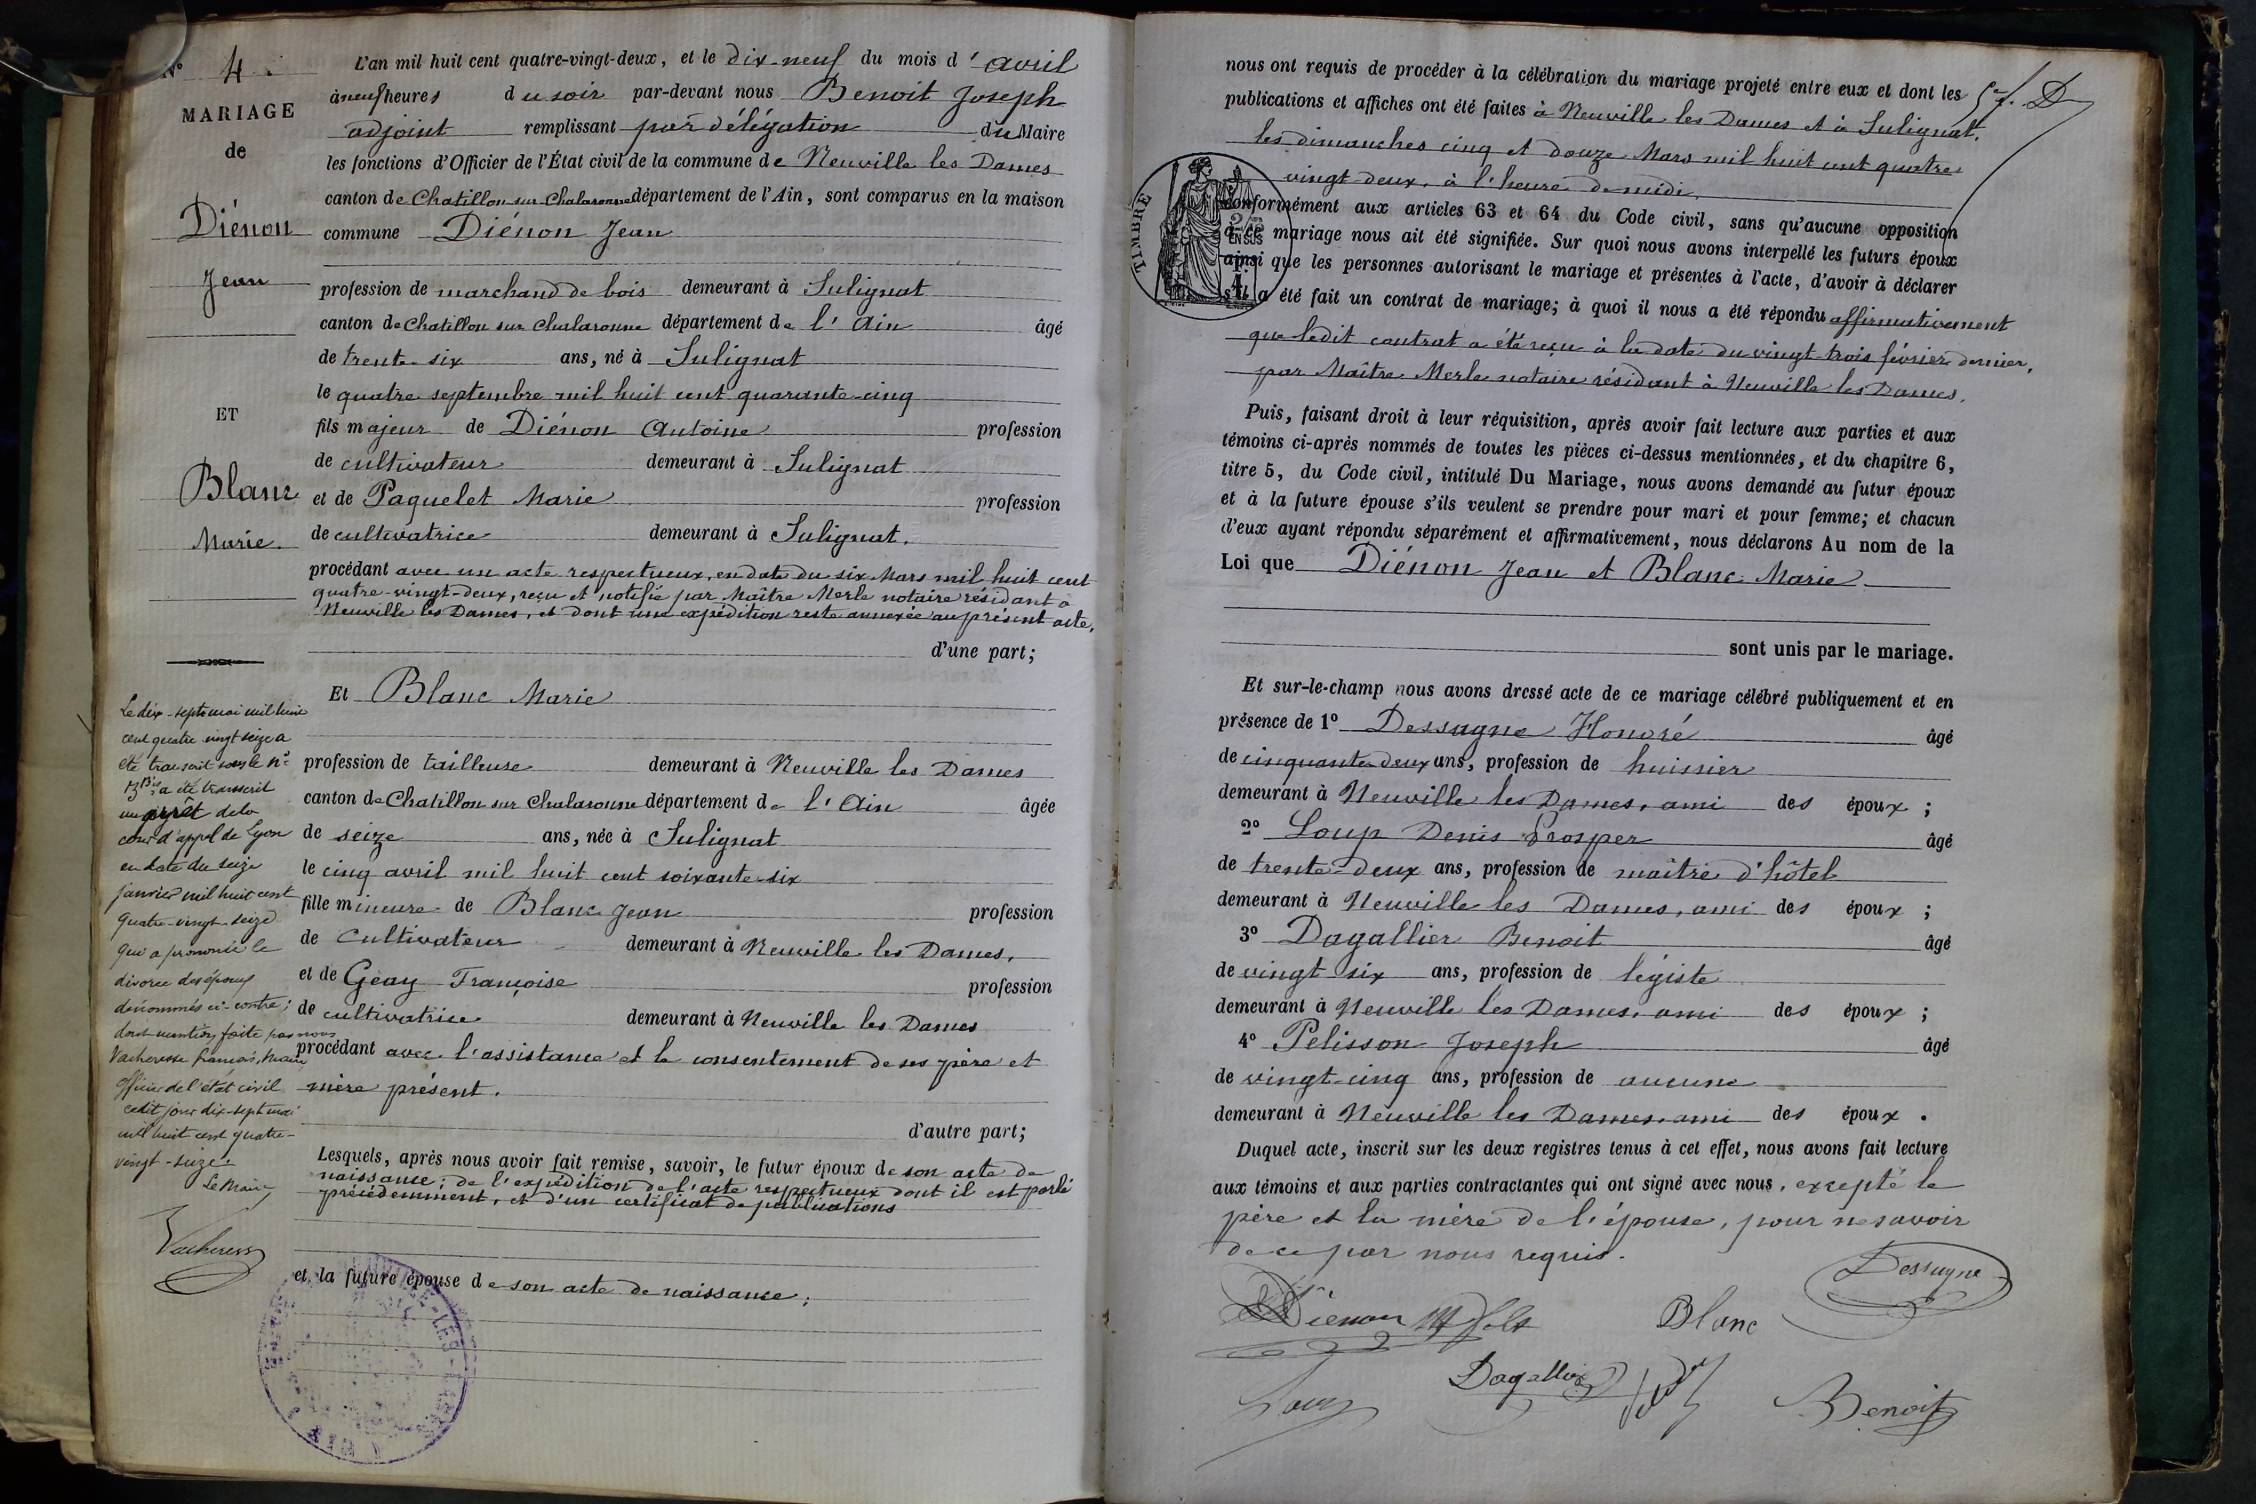 N° 4
MARIAGE
de
Diénon
Jean
ET
Blanc
Marie.
Le dix-sept mai mil huit
cent quatre vingt seize a
été transcrit sous le n°
13 bis a été transcrit
un arrêt de la
cour d'appel de Lyon
en date du seize
janvier mil huit cent
quatre-vingt-seize
qui a prononcé le
divorce des époux
dénommés ci-contre;
dont mention faite par nous
Vacheresse François, Maire
officier de l'état civil
cedit jour dix-sept mai
mil huit cent quatre-
vingt-seize.
Le Maire
Vacheresse
L'an mil huit cent quatre-vingt-deux, et le dix-neuf du mois d'avril
à neuf heures du soir par-devant nous Benoit Joseph
adjoint remplissant par délégation du Maire
les fonctions d'Officier de l'État civil de la commune de Neuville les Dames
canton de Chatillon sur Chalaronne département de l'Ain, sont comparus en la maison
commune Diénon Jean
profession de marchand de bois demeurant à Sulignat
canton de Chatillon sur Chalaronne département de l'Ain âgé
de trente-six ans, né à Sulignat
le quatre septembre mil huit cent quarante-cinq
fils majeur de Diénon Antoine profession
de cultivateur demeurant à Sulignat
et de Paquelet Marie profession
de cultivatrice demeurant à Sulignat.
procédant avec un acte respectueux, en date du six Mars mil huit cent
quatre-vingt-deux, reçu et notifié par Maître Merle notaire résidant à
Neuville les Dames, et dont une expédition reste annexée au présent acte.
d'une part;
Et Blanc Marie
profession de tailleuse demeurant à Neuville les Dames
canton de Chatillon sur Chalaronne département de l'Ain âgée
de seize ans, née à Sulignat
le cinq avril mil huit cent soixante-six
fille mineure de Blanc Jean profession
de Cultivateur demeurant à Neuville les Dames,
et de Géay Françoise profession
de cultivatrice demeurant à Neuville les Dames
procédant avec l'assistance et le consentement de ses père et
mère présent.
d'autre part;
Lesquels, après nous avoir fait remise, savoir, le futur époux de son acte de
naissance; de l'expédition de l'acte respectueux dont il est parlé
précédemment, et d'un certificat de publications
et la future épouse de son acte de naissance;
nous ont requis de procéder à la célébration du mariage projeté entre eux et dont les
publications et affiches ont été faites à Neuville les Dames et à Sulignat,
les dimanches cinq et douze Mars mil huit cent quatre
vingt-deux, à l'heure de midi,
TIMBRE
conformément aux articles 63 et 64 du Code civil, sans qu'aucune opposition
à ce mariage nous ait été signifiée. Sur quoi nous avons interpellé les futurs époux
ainsi que les personnes autorisant le mariage et présentes à l'acte, d'avoir à déclarer
s'il a été fait un contrat de mariage; à quoi il nous a été répondu affirmativement
que ledit contrat a été reçu à la date du vingt-trois février dernier,
par Maître Merle notaire résidant à Neuville les Dames.
Puis, faisant droit à leur réquisition, après avoir fait lecture aux parties et aux
témoins ci-après nommés de toutes les pièces ci-dessus mentionnées, et du chapitre 6,
titre 5, du Code civil, intitulé Du Mariage, nous avons demandé au futur époux
et à la future épouse s'ils veulent se prendre pour mari et pour femme; et chacun
d'eux ayant répondu séparément et affirmativement, nous déclarons Au nom de la
Loi que Diénon Jean et Blanc Marie
sont unis par le mariage.
Et sur-le-champ nous avons dressé acte de ce mariage célébré publiquement et en
présence de 1° Dessugne Honoré âgé
de cinquante-deux ans, profession de huissier
demeurant à Neuville les Dames, ami des époux;
2° Loup Denis Prosper âgé
de trente-deux ans, profession de maître d'hôtel
demeurant à Neuville les Dames, ami des époux;
3° Dagallier Benoit âgé
de vingt-six ans, profession de légiste
demeurant à Neuville les Dames, ami des époux;
4° Pelisson Joseph âgé
de vingt-cinq ans, profession de aucune
demeurant à Neuville les Dames, ami des époux.
Duquel acte, inscrit sur les deux registres tenus à cet effet, nous avons fait lecture
aux témoins et aux parties contractantes qui ont signé avec nous, excepté le
père et la mère de l'épouse, pour ne savoir
de ce par nous requis.
Dessugne
Diénon
Blanc
Dagallier
Loup
Benoit